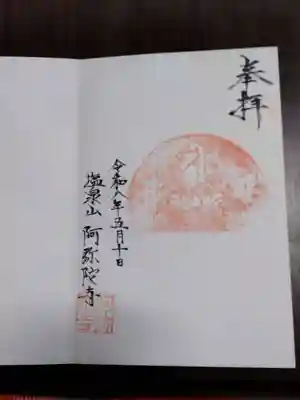 奉拝
令和八年五月十日
塩泉山 阿弥陀寺